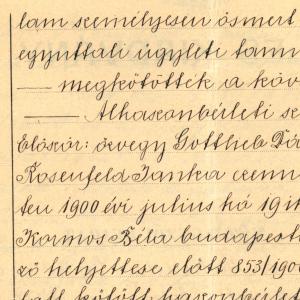 lam személyesen ösmert
egyuttali ügyleti tanu
— megkötötték a köv
— Alhaszonbérleti sz
Először: özvegy Gottlieb
Rosenfeld Janka
ten 1900 évi julius hó 19
Kormos Béla budapesti
ző helyettese előtt 853/1900
latt kötött haszonbérlet